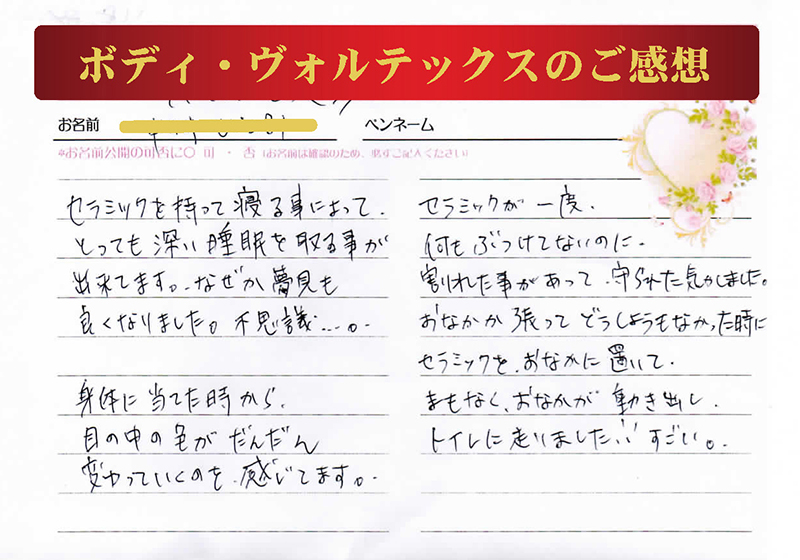 ボディ・ヴォルテックスのご感想
お名前
ペンネーム
※お名前公開の可否に○ 可 ・ 否 (お名前は確認のため、必ずご記入ください)
セラミックを持って寝る事によって、
とっても深い睡眠を取る事が
出来てます。なぜか夢見も
良くなりました。不思議…。
身体に当てた時から、
目の中の色がだんだん
変わっていくのを、感じてます。
セラミックが一度、
何もぶつけてないのに、
割れた事があって、守られた気がしました。
おなかが張ってどうしようもなかった時に
セラミックを、おなかに置いて、
まもなく、おなかが動き出し、
トイレに走りました!!すごい。